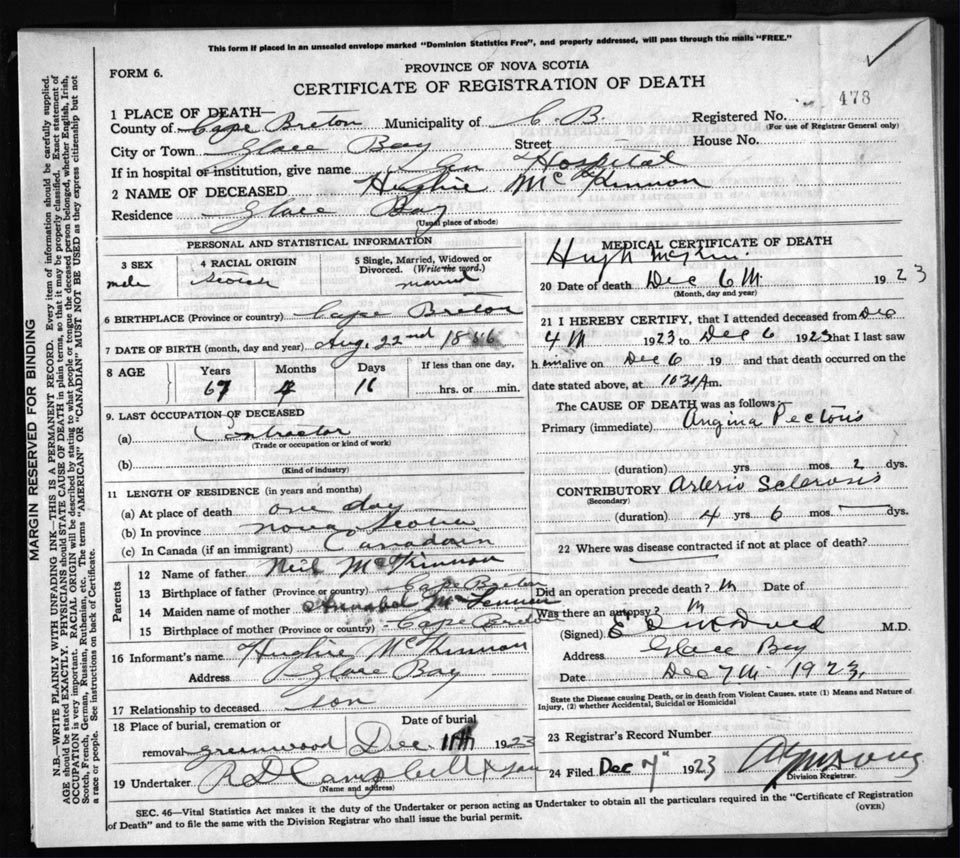 This form if placed in an unsealed envelope marked "Dominion Statistics Free", and properly addressed, will pass through the mails "FREE."
FORM 6.
PROVINCE OF NOVA SCOTIA
CERTIFICATE OF REGISTRATION OF DEATH
478
1 PLACE OF DEATH—
County of Cape Breton Municipality of C. B. Registered No.
(For use of Registrar General only)
City or Town Glace Bay Street House No.
If in hospital or institution, give name Gen Hospital
2 NAME OF DECEASED Hughie McKinnon
Residence Glace Bay
(Usual place of abode)
PERSONAL AND STATISTICAL INFORMATION
3 SEX
male
4 RACIAL ORIGIN
Scotch
5 Single, Married, Widowed or Divorced. (Write the word.)
married
6 BIRTHPLACE (Province or country) Cape Breton
7 DATE OF BIRTH (month, day and year) Aug. 22nd 1856
8 AGE
Years Months Days If less than one day,
67 16 hrs. or min.
9. LAST OCCUPATION OF DECEASED
(a) Contractor
(Trade or occupation or kind of work)
(b)
(Kind of industry)
11 LENGTH OF RESIDENCE (in years and months)
(a) At place of death one day
(b) In province Nova Scotia
(c) In Canada (if an immigrant) Canadian
Parents
12 Name of father Neil McKinnon
13 Birthplace of father (Province or country) Cape Breton
14 Maiden name of mother Annabel McLennon
15 Birthplace of mother (Province or country) Cape Breton
16 Informant's name Hughie McKinnon
Address Glace Bay
17 Relationship to deceased son
18 Place of burial, cremation or Date of burial
removal greenwood Dec. 11th 1923
19 Undertaker R D Campbell & Son
(Name and address)
MEDICAL CERTIFICATE OF DEATH
Hugh
20 Date of death Dec 6 1923
(Month, day and year)
21 I HEREBY CERTIFY, that I attended deceased from Dec
4 1923 to Dec 6 1923 that I last saw
him alive on Dec 6 19 and that death occurred on the
date stated above, at 10.30 Am.
The CAUSE OF DEATH was as follows:
Primary (immediate) Angina Pectoris
(duration) yrs. mos. 2 dys.
CONTRIBUTORY Arterio Sclerosis
(Secondary)
(duration) 4 yrs 6 mos. dys.
22 Where was disease contracted if not at place of death?
Did an operation precede death? Date of
Was there an autopsy?
(Signed) M.D.
Address Glace Bay
Date Dec 7 1923
State the Disease causing Death, or in death from Violent Causes, state (1) Means and Nature of Injury, (2) whether Accidental, Suicidal or Homicidal
23 Registrar's Record Number
24 Filed Dec 7" 1923
Division Registrar.
SEC. 46—Vital Statistics Act makes it the duty of the Undertaker or person acting as Undertaker to obtain all the particulars required in the "Certificate of Registration
of Death" and to file the same with the Division Registrar who shall issue the burial permit. (OVER)
MARGIN RESERVED FOR BINDING
N.B.—WRITE PLAINLY WITH UNFADING INK—THIS IS A PERMANENT RECORD. Every item of information should be carefully supplied.
AGE should be stated EXACTLY. PHYSICIANS should STATE CAUSE OF DEATH in plain terms, so that it may be properly classified. Exact statement of
OCCUPATION is very important. RACIAL ORIGIN will be described by stating to what people or tongue the deceased person belonged, whether English, Irish,
Scotch, French, German, Russian, Ruthenian, etc. The terms "AMERICAN" OR "CANADIAN" MUST NOT BE USED as they express citizenship but not
a race or people. See instructions on back of Certificate.